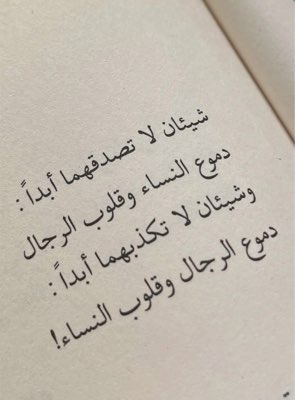 شيئان لا تصدقهما أبداً :
دموع النساء وقلوب الرجال
وشيئان لا تكذبهما أبداً :
دموع الرجال وقلوب النساء!